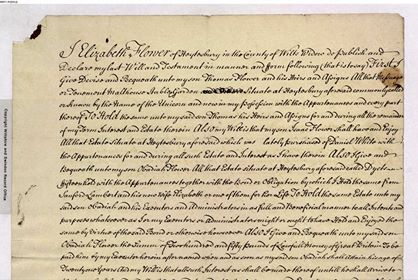 I Elizabeth Flower of Heytesbury in the County of Wilts Widow do publish and
Declare my last Will and Testament in manner and form following (that is to say) First I
Give Devise and Bequeath unto my son Thomas Flower and his Heirs and Assigns All that Messuage
or Tenement Malthouse Stables Garden situate at Heytesbury aforesaid commonly called
or known by the Name of the Unicorn and now in my possession with the Appurtenances and every part
thereof To Hold the same unto my said son Thomas his Heirs and Assigns for and during all the remainder
of my Term Interest and Estate therein Also my Will is that my son Isaac Flower shall have and Enjoy
All that Estate situate at Heytesbury aforesaid which was lately purchased of Daniel with
the Appurtenances for and during all such Estate and Interest as I have therein Also I Give and
Bequeath unto my son Obadiah Flower All that Estate situate at Heytesbury aforesaid called
with the Appurtenances together with the bond or Obligation by which I had the same from
and his now wife To Hold the same Unto my
said son Obadiah and his Executors and Administrators in as full and Beneficial manner to all Intents and
purposes whatsoever as I or my Executors or Administrators might or ought to have Had and Enjoyed the
same by Virtue of the said Bond or otherwise howsoever Also I Give and Bequeath unto my said son
Obadiah Flower the Summ of Two hundred and fifty pounds of Lawfull Money of Great Britain To be
paid him by my Executor herein after named when and as soon as my said son Obadiah shall attain his age of
Twenty one Years And my Will is that all such Interest as shall
Copyright Wiltshire and Swindon Record Office